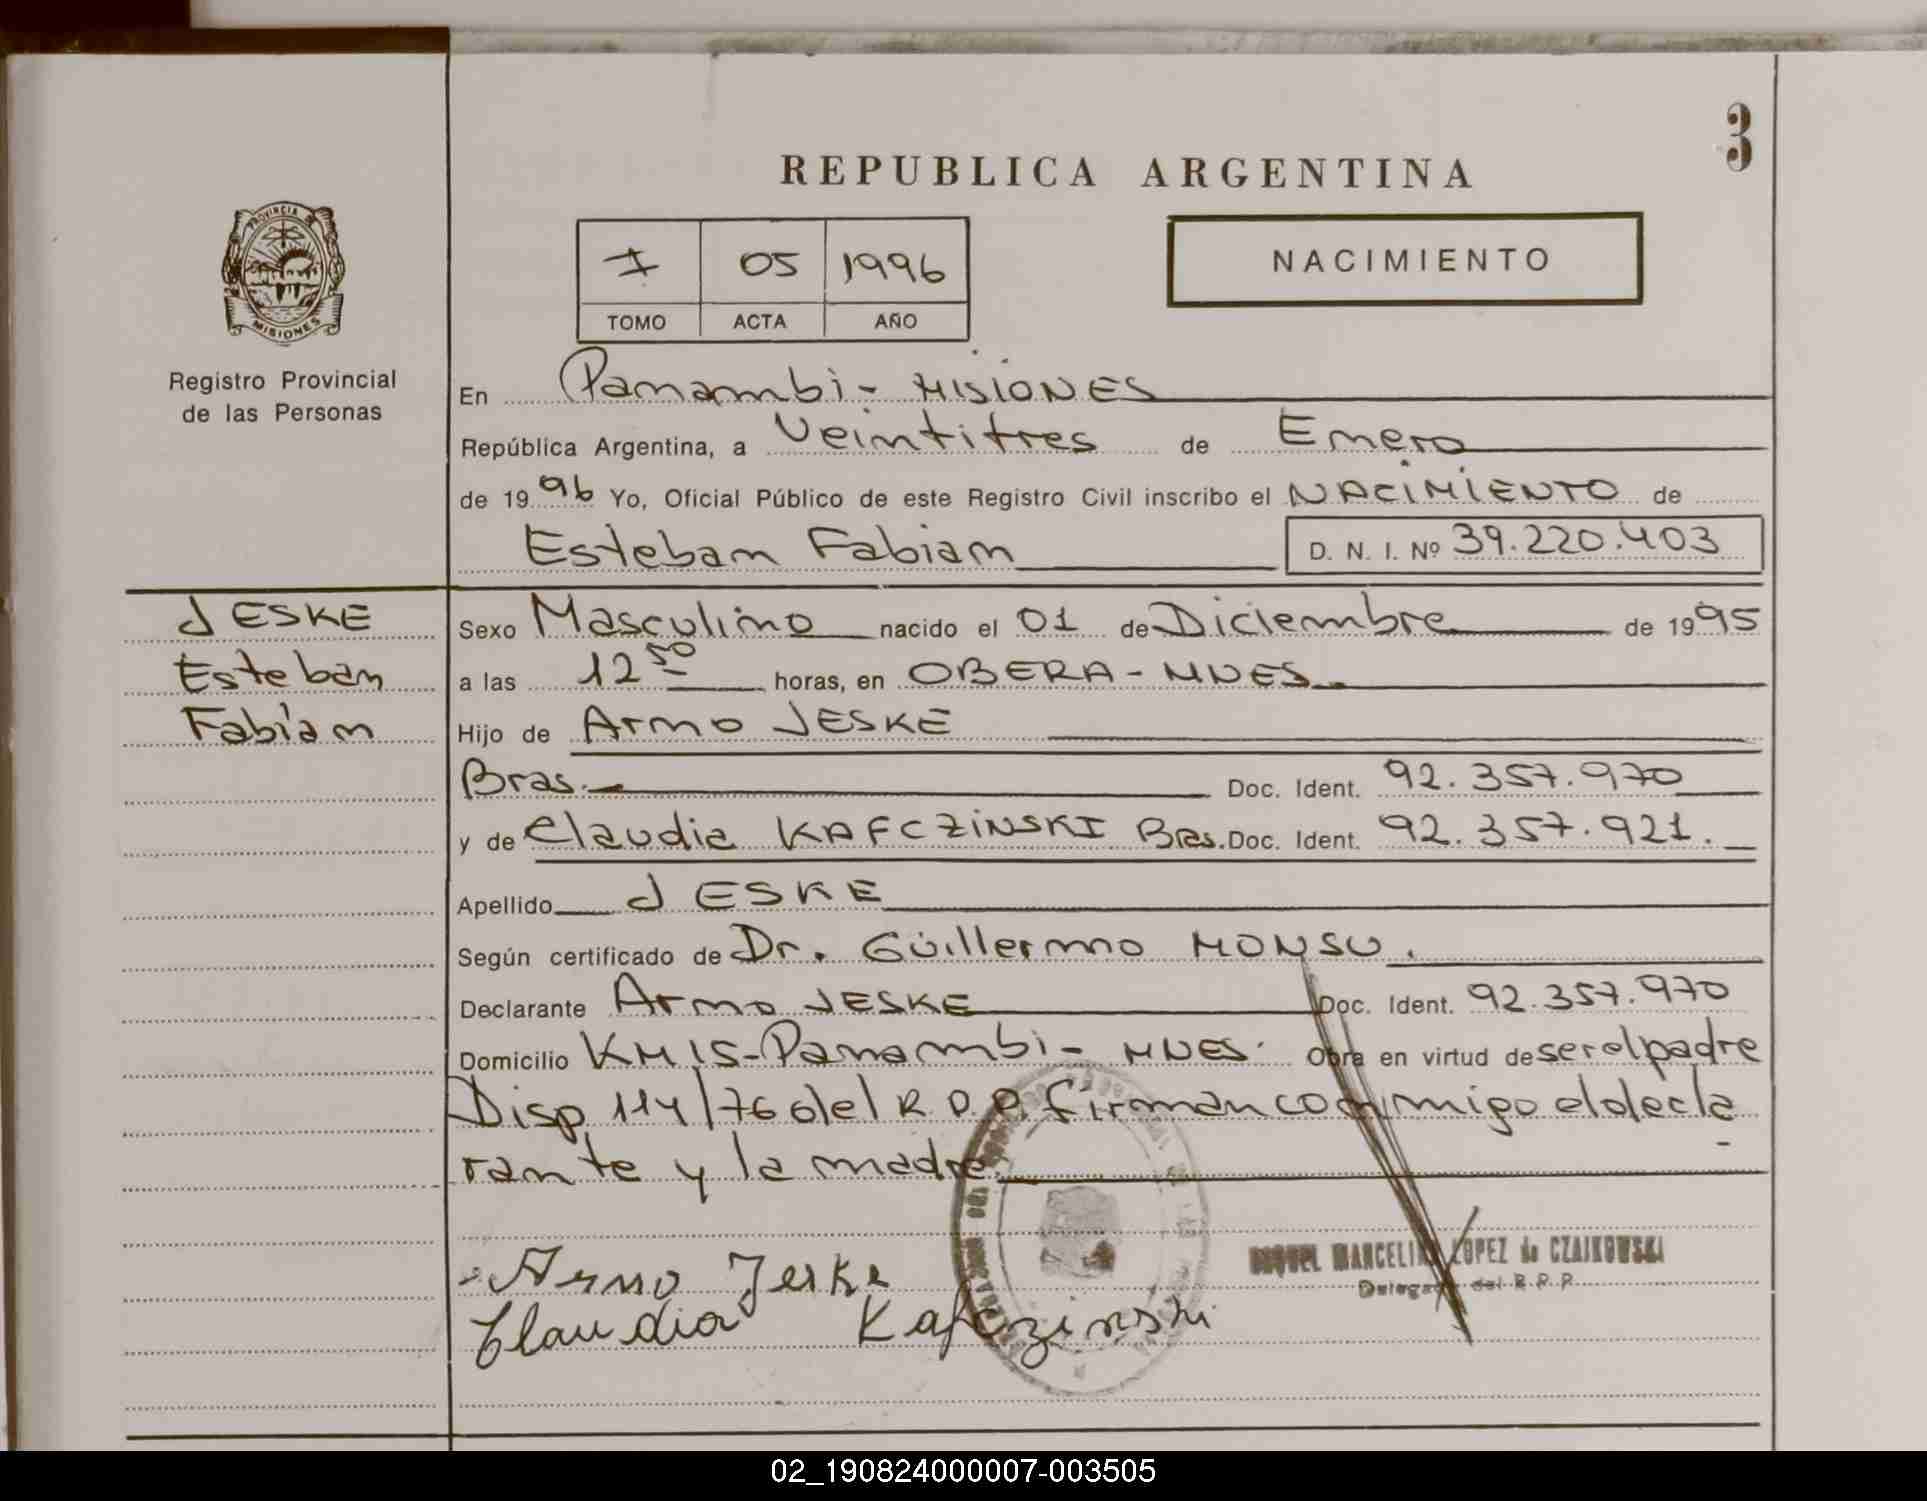 3
REPUBLICA ARGENTINA
PROVINCIA DE
MISIONES
Registro Provincial
de las Personas
I 05 1996
TOMO ACTA AÑO
NACIMIENTO
En Panambi - MISIONES
República Argentina, a Veintitres de Enero
de 1996 Yo, Oficial Público de este Registro Civil inscribo el NACIMIENTO de
Esteban Fabian D. N. I. Nº 39.220.403
JESKE
Esteban
Fabián
Sexo Masculino nacido el 01 de Diciembre de 1995
a las 12 50 horas, en OBERA - MNES.
Hijo de Arno JESKE
Bras. Doc. Ident. 92.357.970
y de Claudia KAFCZINSKI Bras. Doc. Ident. 92.357.921.
Apellido JESKE
Según certificado de Dr. Guillermo MONSU.
Declarante Arno JESKE Doc. Ident. 92.357.970
Domicilio KM 15-Panambi- MNES. Obra en virtud de ser el padre
Disp 114/76 del R.P.P. firman conmigo el decla
rante y la madre.
Arno Jeske
Claudia Kafczinski
RAQUEL MARCELINA LOPEZ de CZAJKOWSKI
Delegada del R.P.P.
02_190824000007-003505